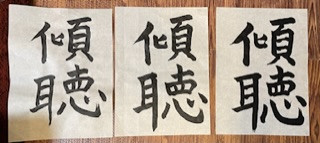 傾聴
傾聴
傾聴